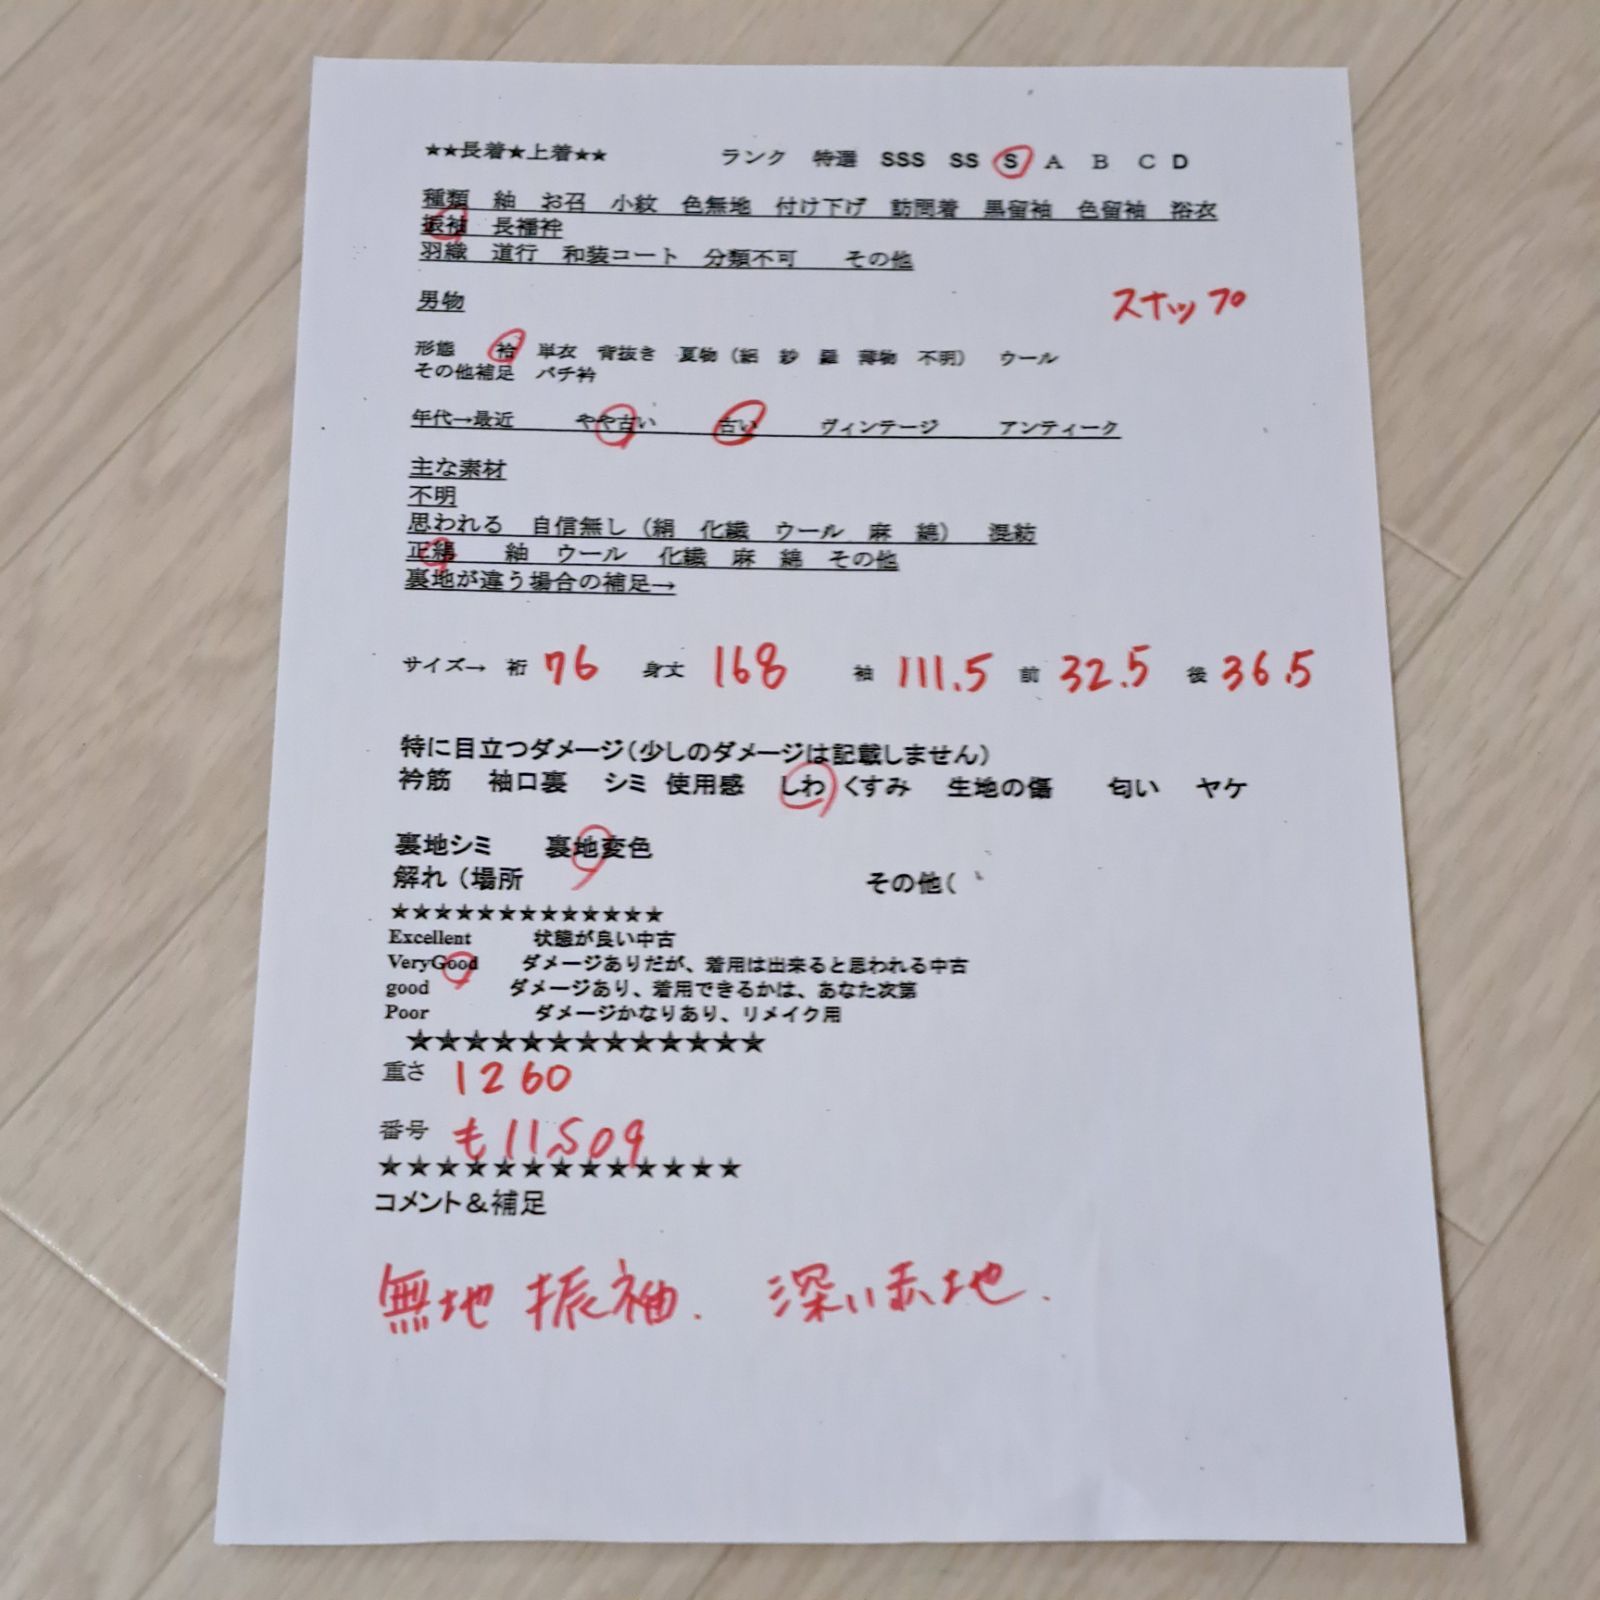 ★★長着★上着★★ ランク 特選 SSS SS S A B C D
種類 紬 お召 小紋 色無地 付け下げ 訪問着 黒留袖 色留袖 浴衣
振袖 長襦袢
羽織 道行 和装コート 分類不可 その他
男物
スナップ
形態 袷 単衣 背抜き 夏物（絽 紗 羅 薄物 不明） ウール
その他補足 バチ衿
年代→最近 やや古い 古い ヴィンテージ アンティーク
主な素材
不明
思われる 自信無し（絹 化繊 ウール 麻 綿） 混紡
正絹 紬 ウール 化繊 麻 綿 その他
裏地が違う場合の補足→
サイズ→ 裄 76 身丈 168 袖 111.5 前 32.5 後 36.5
特に目立つダメージ（少しのダメージは記載しません）
衿筋 袖口裏 シミ 使用感 しわ くすみ 生地の傷 匂い ヤケ
裏地シミ 裏地変色
解れ（場所 その他（
★★★★★★★★★★★★★
Excellent 状態が良い中古
VeryGood ダメージありだが、着用は出来ると思われる中古
good ダメージあり、着用できるかは、あなた次第
Poor ダメージかなりあり、リメイク用
★★★★★★★★★★★★★
重さ 1260
番号 も11509
★★★★★★★★★★★★★
コメント＆補足
無地 振袖. 深い赤地.